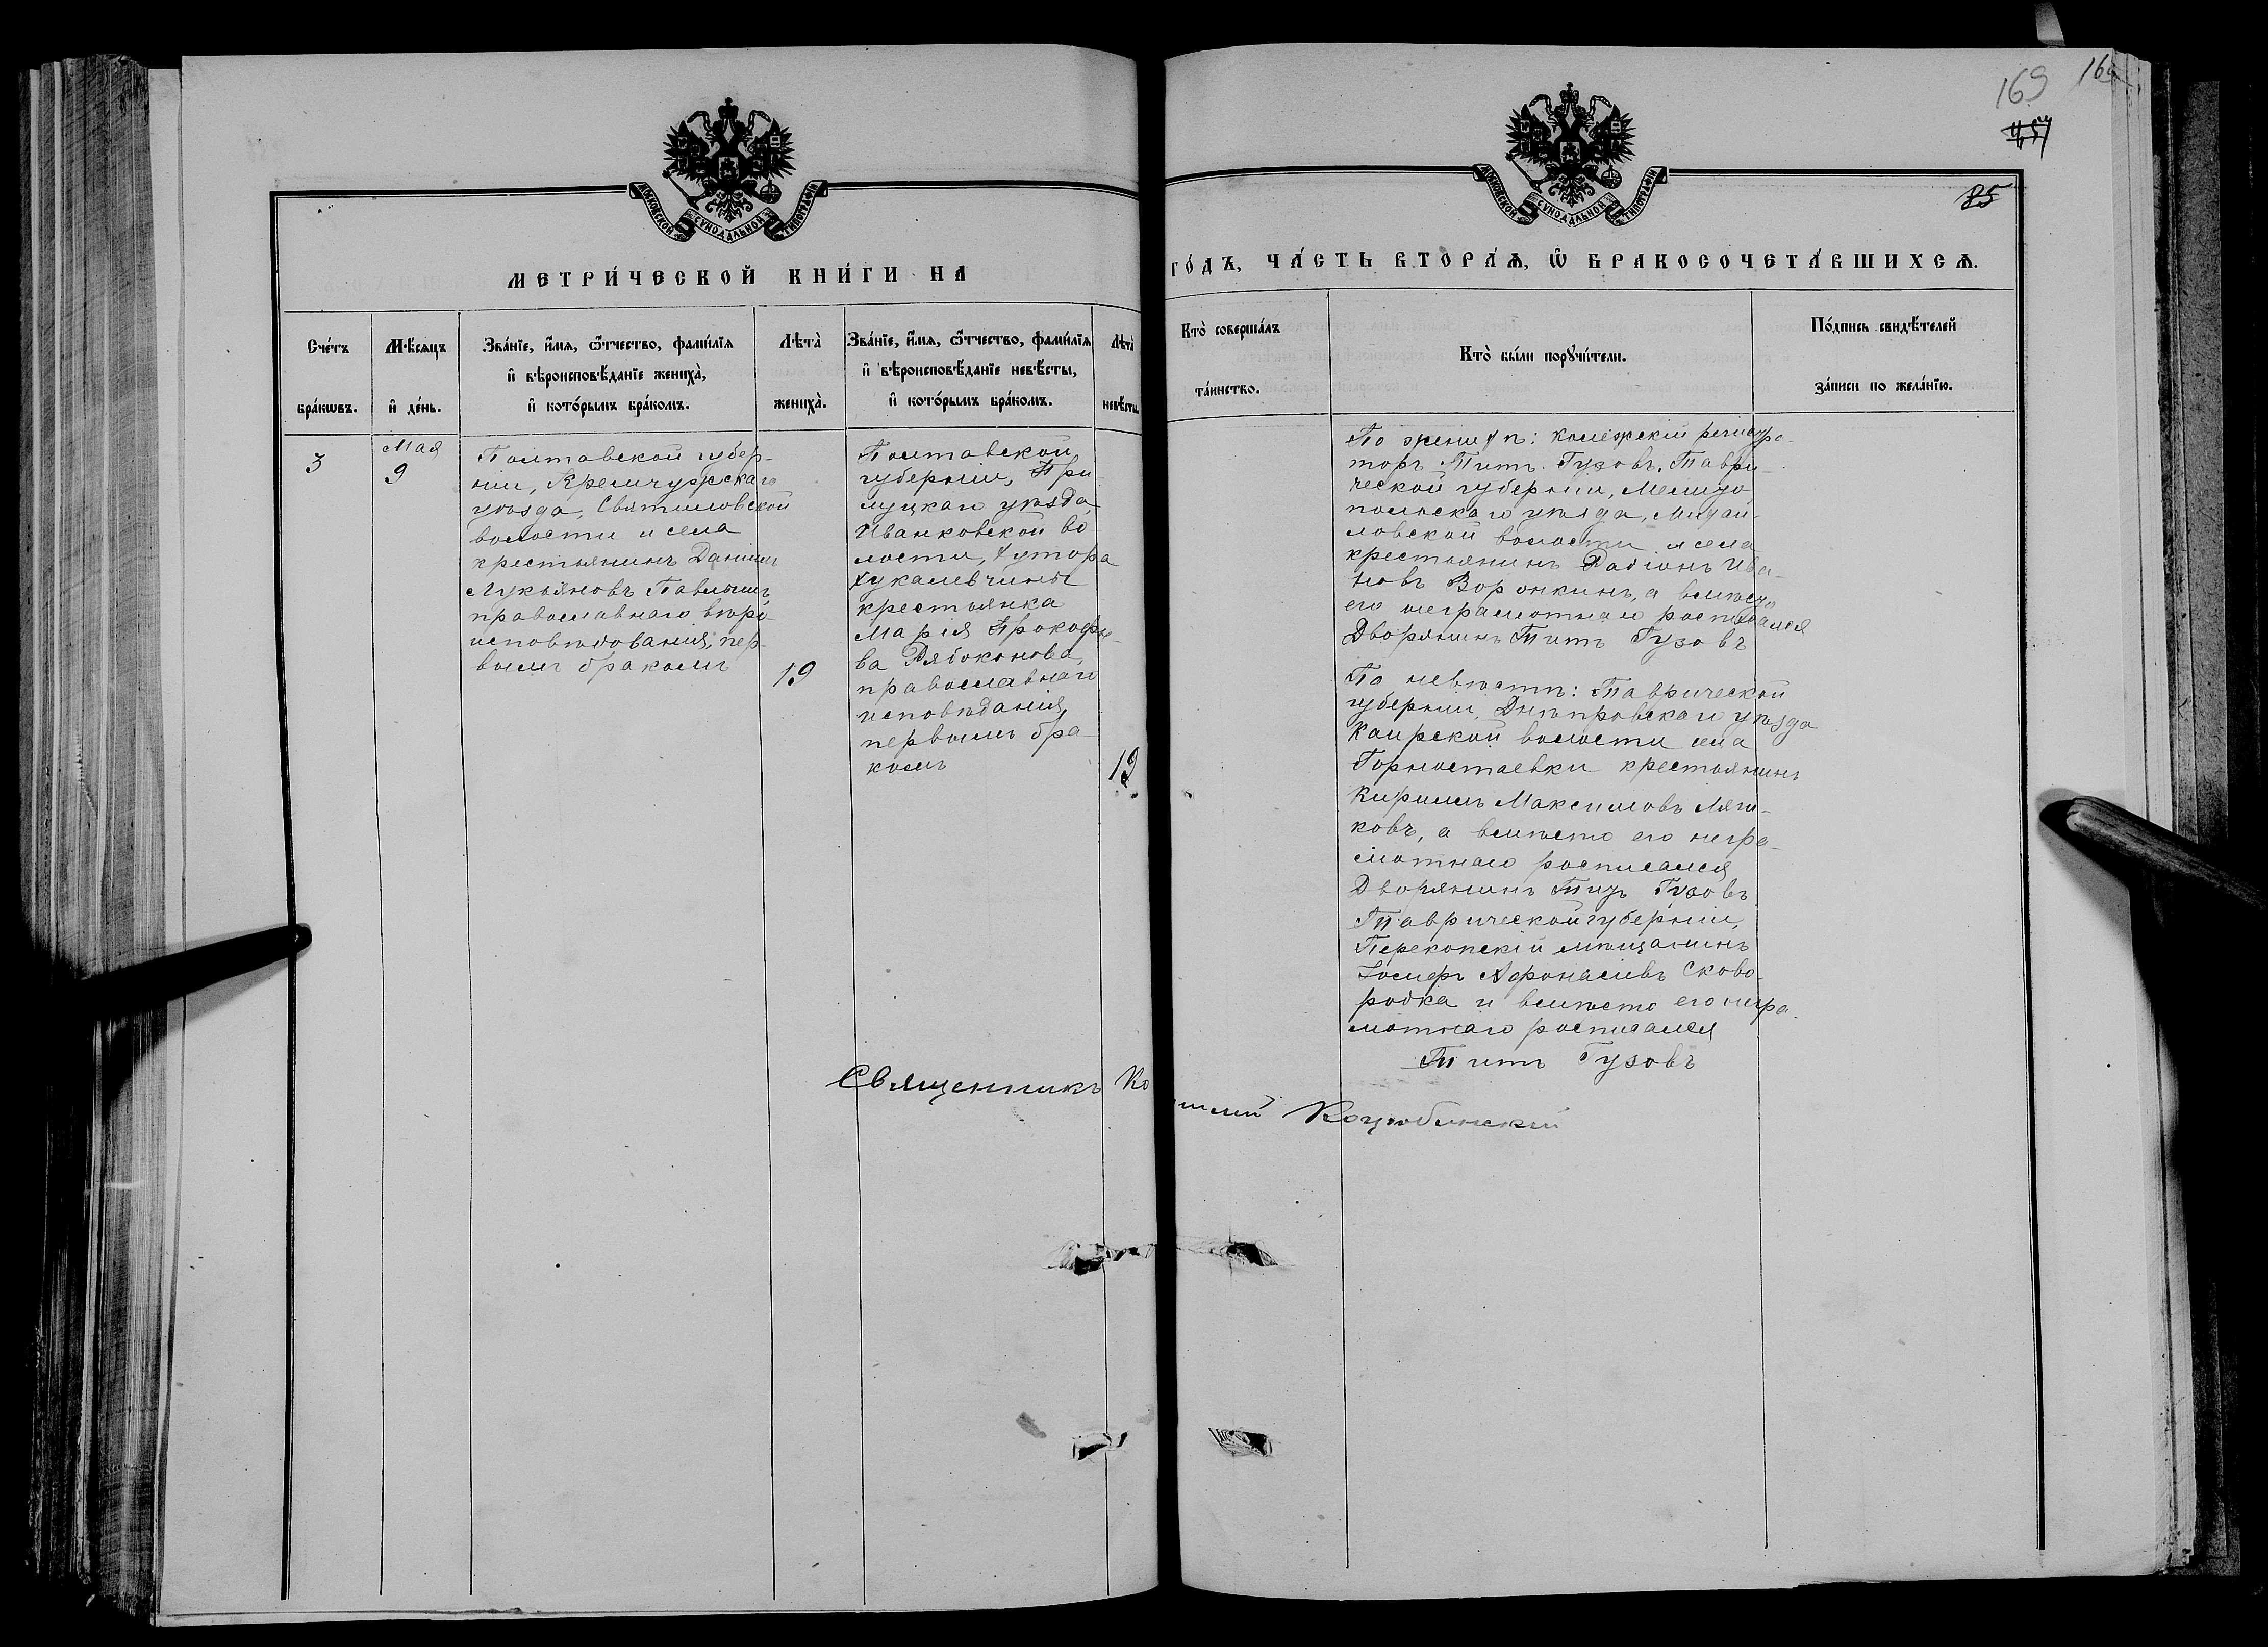 169
169
85
МОСКОВСКОЙ СѴНОДАЛЬНОЙ ТИПОГРАФІИ
МОСКОВСКОЙ СѴНОДАЛЬНОЙ ТИПОГРАФІИ
МЕТРИ́ЧЕСКОЙ КНИ́ГИ НА
ГО́ДЪ, ЧА́СТЬ ВТОРА́Ѧ, Ѽ БРАКОСОЧЕТА́ВШИХСѦ.
Сче́тъ
бра́кѡвъ.
Мѣ́сѧцъ
и҆ де́нь.
Зва́нїе, и҆́мѧ, ѻ҆́тчество, фами́лїѧ
и҆ вѣроисповѣ́данїе жениха̀,
и҆ кото́рымъ бра́комъ.
Лѣта̀
жениха̀.
Зва́нїе, и҆́мѧ, ѻ҆́тчество, фами́лїѧ
и҆ вѣроисповѣ́данїе невѣ́сты,
и҆ кото́рымъ бра́комъ.
Лѣта̀
невѣ́сты.
Кто̀ соверша́лъ
та́инство.
Кто̀ бы́ли порꙋчи́тели.
По́дпись свидѣ́телей
за́писи по жела́нїю.
3
Мая
9
Полтавской губер-
ніи, Кременчужскаго
уѣзда, Святиловской
волости и села
крестьянинъ Даніилъ
Лукьяновъ Павлышъ
православнаго вѣро-
исповѣдованія, пер-
вымъ бракомъ
19
Полтавской
губерніи, При
луцкаго уѣзда,
Иванковской во
лости, хутора
крестьянка
Марія Прокофье-
ва Рябоконова,
православнаго
исповѣданія,
первымъ бра-
комъ
19
По женихѣ: колежскій регистра-
торъ Титъ Гузовъ, Таври-
ческой губерніи, Мелито
польскаго уѣзда, Михай-
ловской волости и села
крестьянинъ Радіонъ Ива-
новъ Воронкинъ, а вмѣсто
его неграмотнаго росписался
Дворянинъ Титъ Гузовъ
По невѣстѣ: Таврической
губерніи, Днѣпровскаго уѣзда
Каирской волости села
Горностаевки крестьянинъ
Кирилъ Максимовъ Ляши-
ковъ, а вмѣсто его негра-
мотнаго росписался
Дворянинъ Титъ Гузовъ
Таврической губерніи,
Перекопскій мѣщанинъ
Іосифъ Афонасіевъ Сково-
родка и вмѣсто его негра-
мотнаго росписался
Титъ Гузовъ
Священникъ Ко
Коцюбинскій